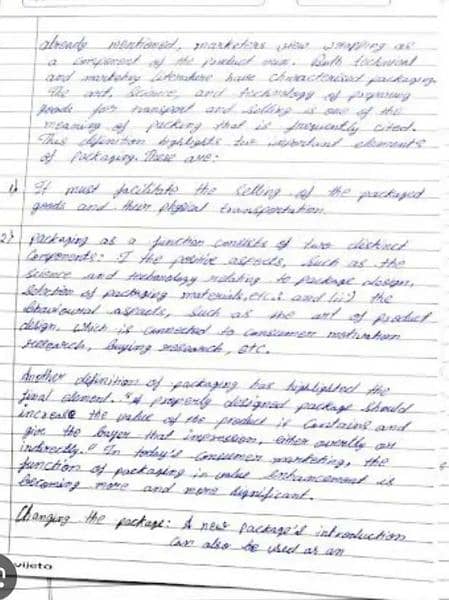 already mentioned, marketers view wrapping as
a component of the product main. Both technical
and marketing literature have characterised packaging.
The art, science, and technology of preparing
goods for transport and selling is one of the
meaning of packing that is frequently cited.
This definition highlights two important elements
of packaging. These are:
1) It must facilitate the selling of the packaged
goods and their physical transportation.
2) packaging as a function consists of two distinct
components: I the positive aspects, such as the
science and technology relating to package design,
selection of packaging materials, etc.; and (ii) the
behavioural aspects, such as the art of product
design, which is connected to consumer motivation
research, buying research, etc.
Another definition of packaging has highlighted the
final element. "A properly designed package should
increase the value of the product is contains and
give the buyer that impression, either overtly or
indirectly." In today's consumer marketing, the
function of packaging in value enhancement is
becoming more and more significant.
Changing the package: A new package's introduction
can also be used as an
vijeta